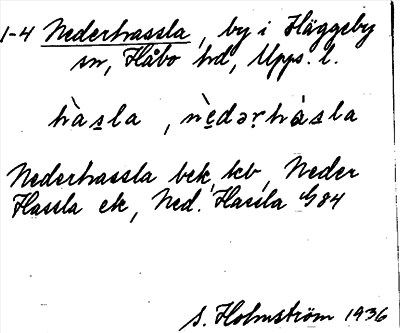 1-4 Nederhassla, by i Häggeby
sn, Håbo hd, Upps. l.
hàsla, nèdərhàsla
Nederhassla bek, kb, Neder
Hassla ek, Ned. Hassla 4/9 84
S. Holmström 1936